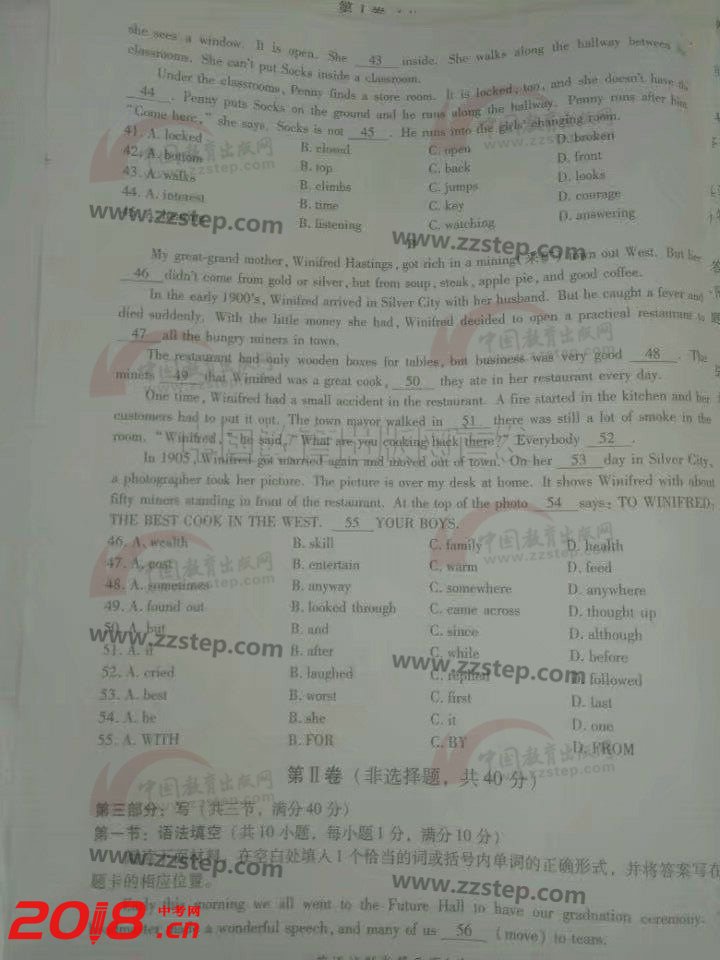 第 I 卷
she sees a window. It is open. She 43 inside. She walks along the hallway between
classrooms. She can't put Socks inside a classroom.
Under the classrooms, Penny finds a store room. It is locked, too, and she doesn't have the
44 . Penny puts Socks on the ground and he runs along the hallway. Penny runs after him.
"Come here," she says. Socks is not 45 . He runs into the girls' changing room.
41. A. locked B. closed C. open D. broken
42. A. bottom B. top C. back D. front
43. A. walks B. climbs C. jumps D. looks
44. A. interest B. time C. key D. courage
B. listening C. watching D. answering
My great-grand mother, Winifred Hastings, got rich in a mining town out West. But her
46 didn't come from gold or silver, but from soup, steak, apple pie, and good coffee.
In the early 1900's, Winifred arrived in Silver City with her husband. But he caught a fever and
died suddenly. With the little money she had, Winifred decided to open a practical restaurant to
47 all the hungry miners in town.
The restaurant had only wooden boxes for tables, but business was very good 48 . The
miners 49 that Winifred was a great cook, 50 they ate in her restaurant every day.
One time, Winifred had a small accident in the restaurant. A fire started in the kitchen and her
customers had to put it out. The town mayor walked in 51 there was still a lot of smoke in the
room. "Winifred," he said, "What are you cooking back there?" Everybody 52 .
In 1905, Winifred got married again and moved out of town. On her 53 day in Silver City,
a photographer took her picture. The picture is over my desk at home. It shows Winifred with about
fifty miners standing in front of the restaurant. At the top of the photo 54 says: TO WINIFRED:
THE BEST COOK IN THE WEST. 55 YOUR BOYS.
46. A. wealth B. skill C. family D. health
47. A. cost B. entertain C. warm D. feed
48. A. sometimes B. anyway C. somewhere D. anywhere
49. A. found out B. looked through C. came across D. thought up
50. A. but B. and C. since D. although
51. A. if B. after C. while D. before
52. A. cried B. laughed C. replied D. followed
53. A. best B. worst C. first D. last
54. A. he B. she C. it D. one
55. A. WITH B. FOR C. BY D. FROM
第Ⅱ卷 (非选择题, 共 40 分)
第三部分: 写 (共三节, 满分 40 分)
第一节: 语法填空 (共 10 小题, 每小题 1 分, 满分 10 分)
在空白处填入 1 个恰当的词或括号内单词的正确形式, 并将答案写在
题卡的相应位置。
Early this morning we all went to the Future Hall to have our graduation ceremony.
a wonderful speech, and many of us 56 (move) to tears.
中国教育出版网
www.zzstep.com
2018.cn
中考网